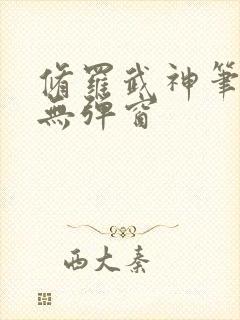 脩羅武神筆
無彈窗
西大秦